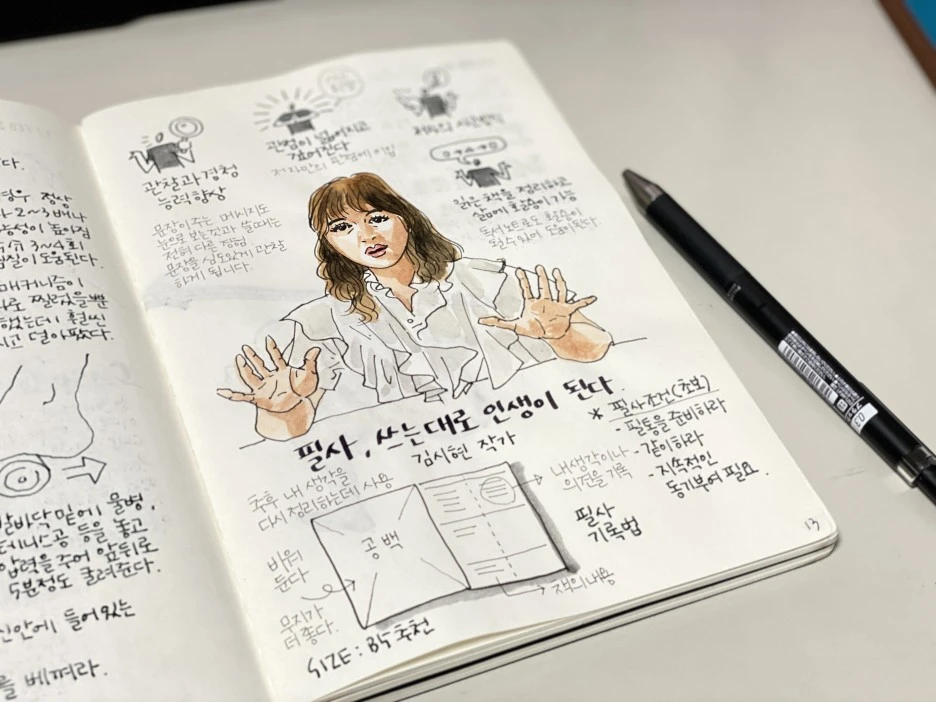 다.
정상
2~3배나
3~4회
도움된다.
메커니즘이
했는데 훨씬
발바닥 밑에 물병,
테니스공 등을 놓고
압력을 주어 앞뒤로
5분정도 굴려준다.
신안에 들어있는
를 베껴라.
관찰과 경청
능력향상
문장이 주는 메시지도
눈으로 보는것과 쓸때는
전혀 다른 경험
문장을 심도있게 관찰
하게 됩니다.
관점이 넓어지고
깊어진다
저자만의 관점에 이입
읽은 책을 정리하고
삶에 적용이 가능
독서노트로도 활용이
될수 있어 도움이된다.
필사, 쓰는대로 인생이 된다
김시현 작가
* 필사조건(초보)
- 필통을 준비하라
- 같이하라
- 지속적인
동기부여 필요.
추후 내 생각을
다시 정리하는데 사용
내생각이나
의견을 기록
필사
기록법
공백
비워
둔다
무지가
더 좋다.
책의내용
SIZE : B5 추천
13
0.3